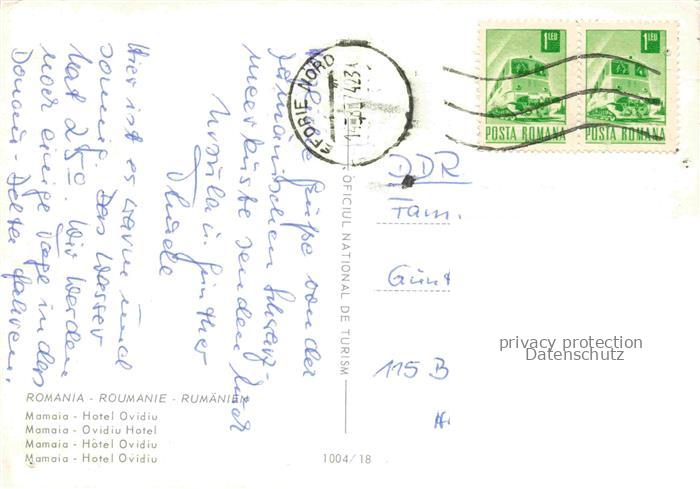 Liebe Grüße von der
rumänischen Schwarz-
meerküste senden Euch
Ursula u. Günther
Thiede
Hier ist es warm und
sonnig. Das Wasser
hat 25°. Wir werden
noch einige Tage in das
Donau-Delta fahren.
EFORIE NORD
1 LEU
POSTA ROMANA
1 LEU
POSTA ROMANA
OFICIUL NATIONAL DE TURISM
DDR
Fam.
Günt
115 B
privacy protection
Datenschutz
ROMANIA - ROUMANIE - RUMÄNIEN
Mamaia - Hotel Ovidiu
Mamaia - Ovidiu Hotel
Mamaia - Hôtel Ovidiu
Mamaia - Hotel Ovidiu
1004/18